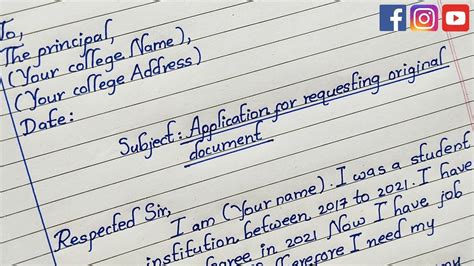 To,
The principal,
(Your college Name),
(Your college Address)
Date:
Subject: Application for requesting original
document
Respected Sir,
I am (Your name). I was a student
institution between 2017 to 2021. I have
degree in 2021 Now I have job
Therefore I need my